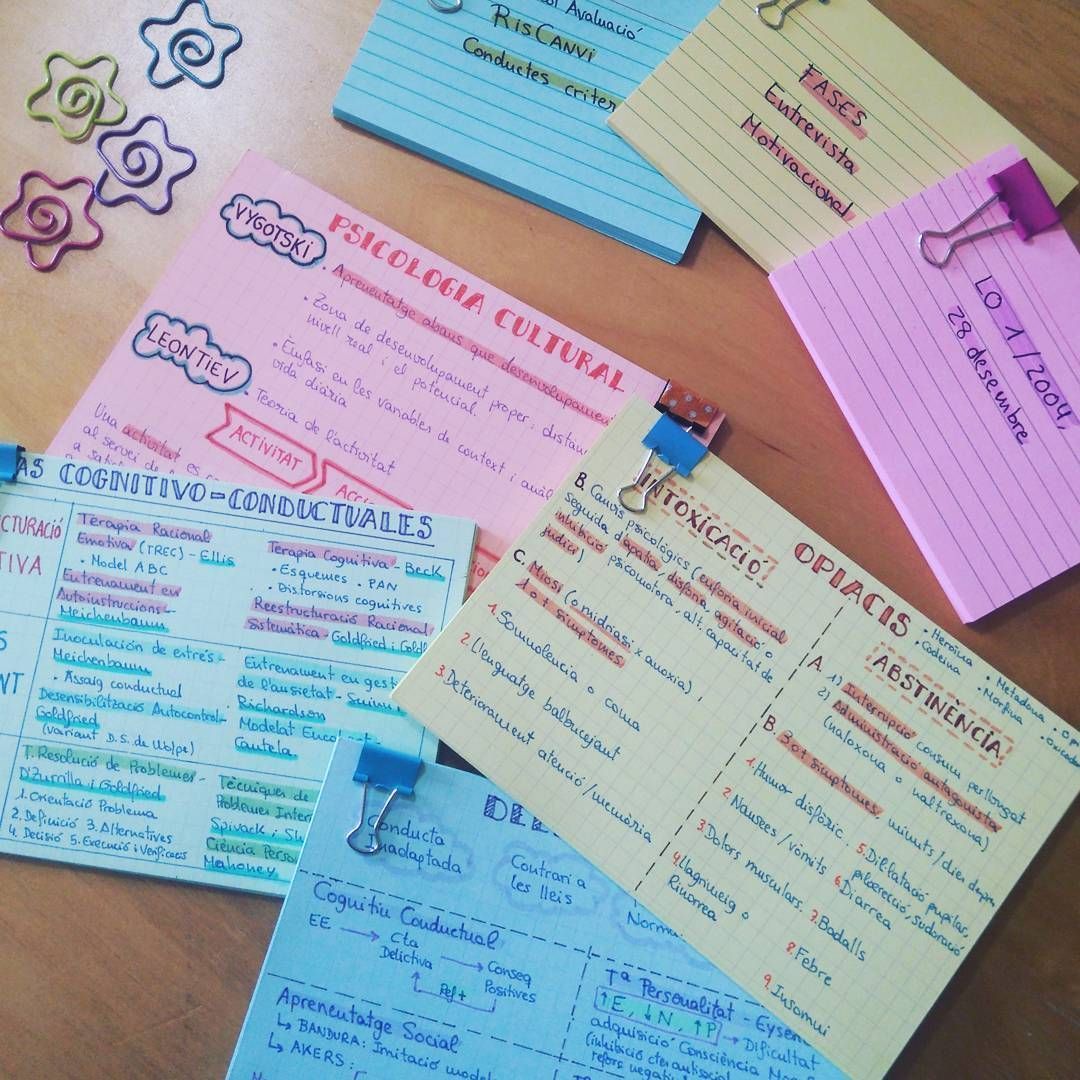 Avaluació
RISCANVI
Conductes criter
FASES
Entrevista
Motivacional
LO 1/2004,
28 desembre
PSICOLOGIA CULTURAL
VYGOTSKI
• Aprenentatge abans que desenvolupament
• Zona de desenvolupament proper: distan
nivell real i el potencial
• Emfasi en les variables de context i anàl
vida diària
LEONTIEV
• Teoria de l'activitat
Una activitat es
al servei de
ACTIVITAT
ACCI
AS COGNITIVO-CONDUCTUALES
CTURACIÓ
TIVA
Terapia Racional
Emotiva (TREC) - Ellis
• Model ABC
Entrenament en
Autoinstruccions -
Meichenbaum
Terapia Cognitiva. Beck
• Esquemes • PAN
• Distorsions cognitives
Reestructuració Racional
Sistemàtica - Goldfried i Goldf
S
NT
Inoculación de estrés -
Meichenbaum
• Assaig conductual
Desensibilització Autocontrol -
Goldfried
(variant D.S. de Wolpe)
Entrenament en gest
de l'ansietat - Suinn
Richardson
Modelat
Cautela
T. Resolució de Problemes -
D'Zurrilla i Goldfried
1. Orientació Problema
2. Definició 3. Alternatives
4. Decisió 5. Execució i Verificació
Tècniques de
Problemes Inter
Spivack i Sh
Ciència Perso
Mahoney
OPIACIS
• Heroïna
• Codeïna
• Metadona
• Morfina
INTOXICACIÓ
B. Canvis psicològics (eufòria inicial
seguida d'apatia, disfòria, agitació o
inhibició psicomotora, alt. capacitat de
judici)
C. Miosi (o midriasi x anoxia)
1 o + símptomes
1. Somnolencia o coma
2. Llenguatge balbucejant
3. Deteriorament atenció/memòria
ABSTINÈNCIA
A.
1) Interrupció consum perllongat
2) Administració antagonista
(naloxona o naltrexona)
B. 3 o + símptomes, minuts/dies després
1. Humor disfòric
2. Nausees/vòmits
3. Dolors musculars
4. Llagrimeig o
Rinorrea
5. Dilatació pupilar,
piloerecció, sudoració
6. Diarrea
7. Badalls
8. Febre
9. Insomni
DEL
Conducta
inadaptada
Contrari a
les lleis
Norma
Cognitiu Conductual
EE → Cta
Delictiva → Conseq
Positives
Ref +
Aprenentatge Social
↳ BANDURA: Imitació model
↳ AKERS:
Tª Personalitat - Eysen
↑E, ↓N, ↑P → Dificultat
adquisició Consciència Mo